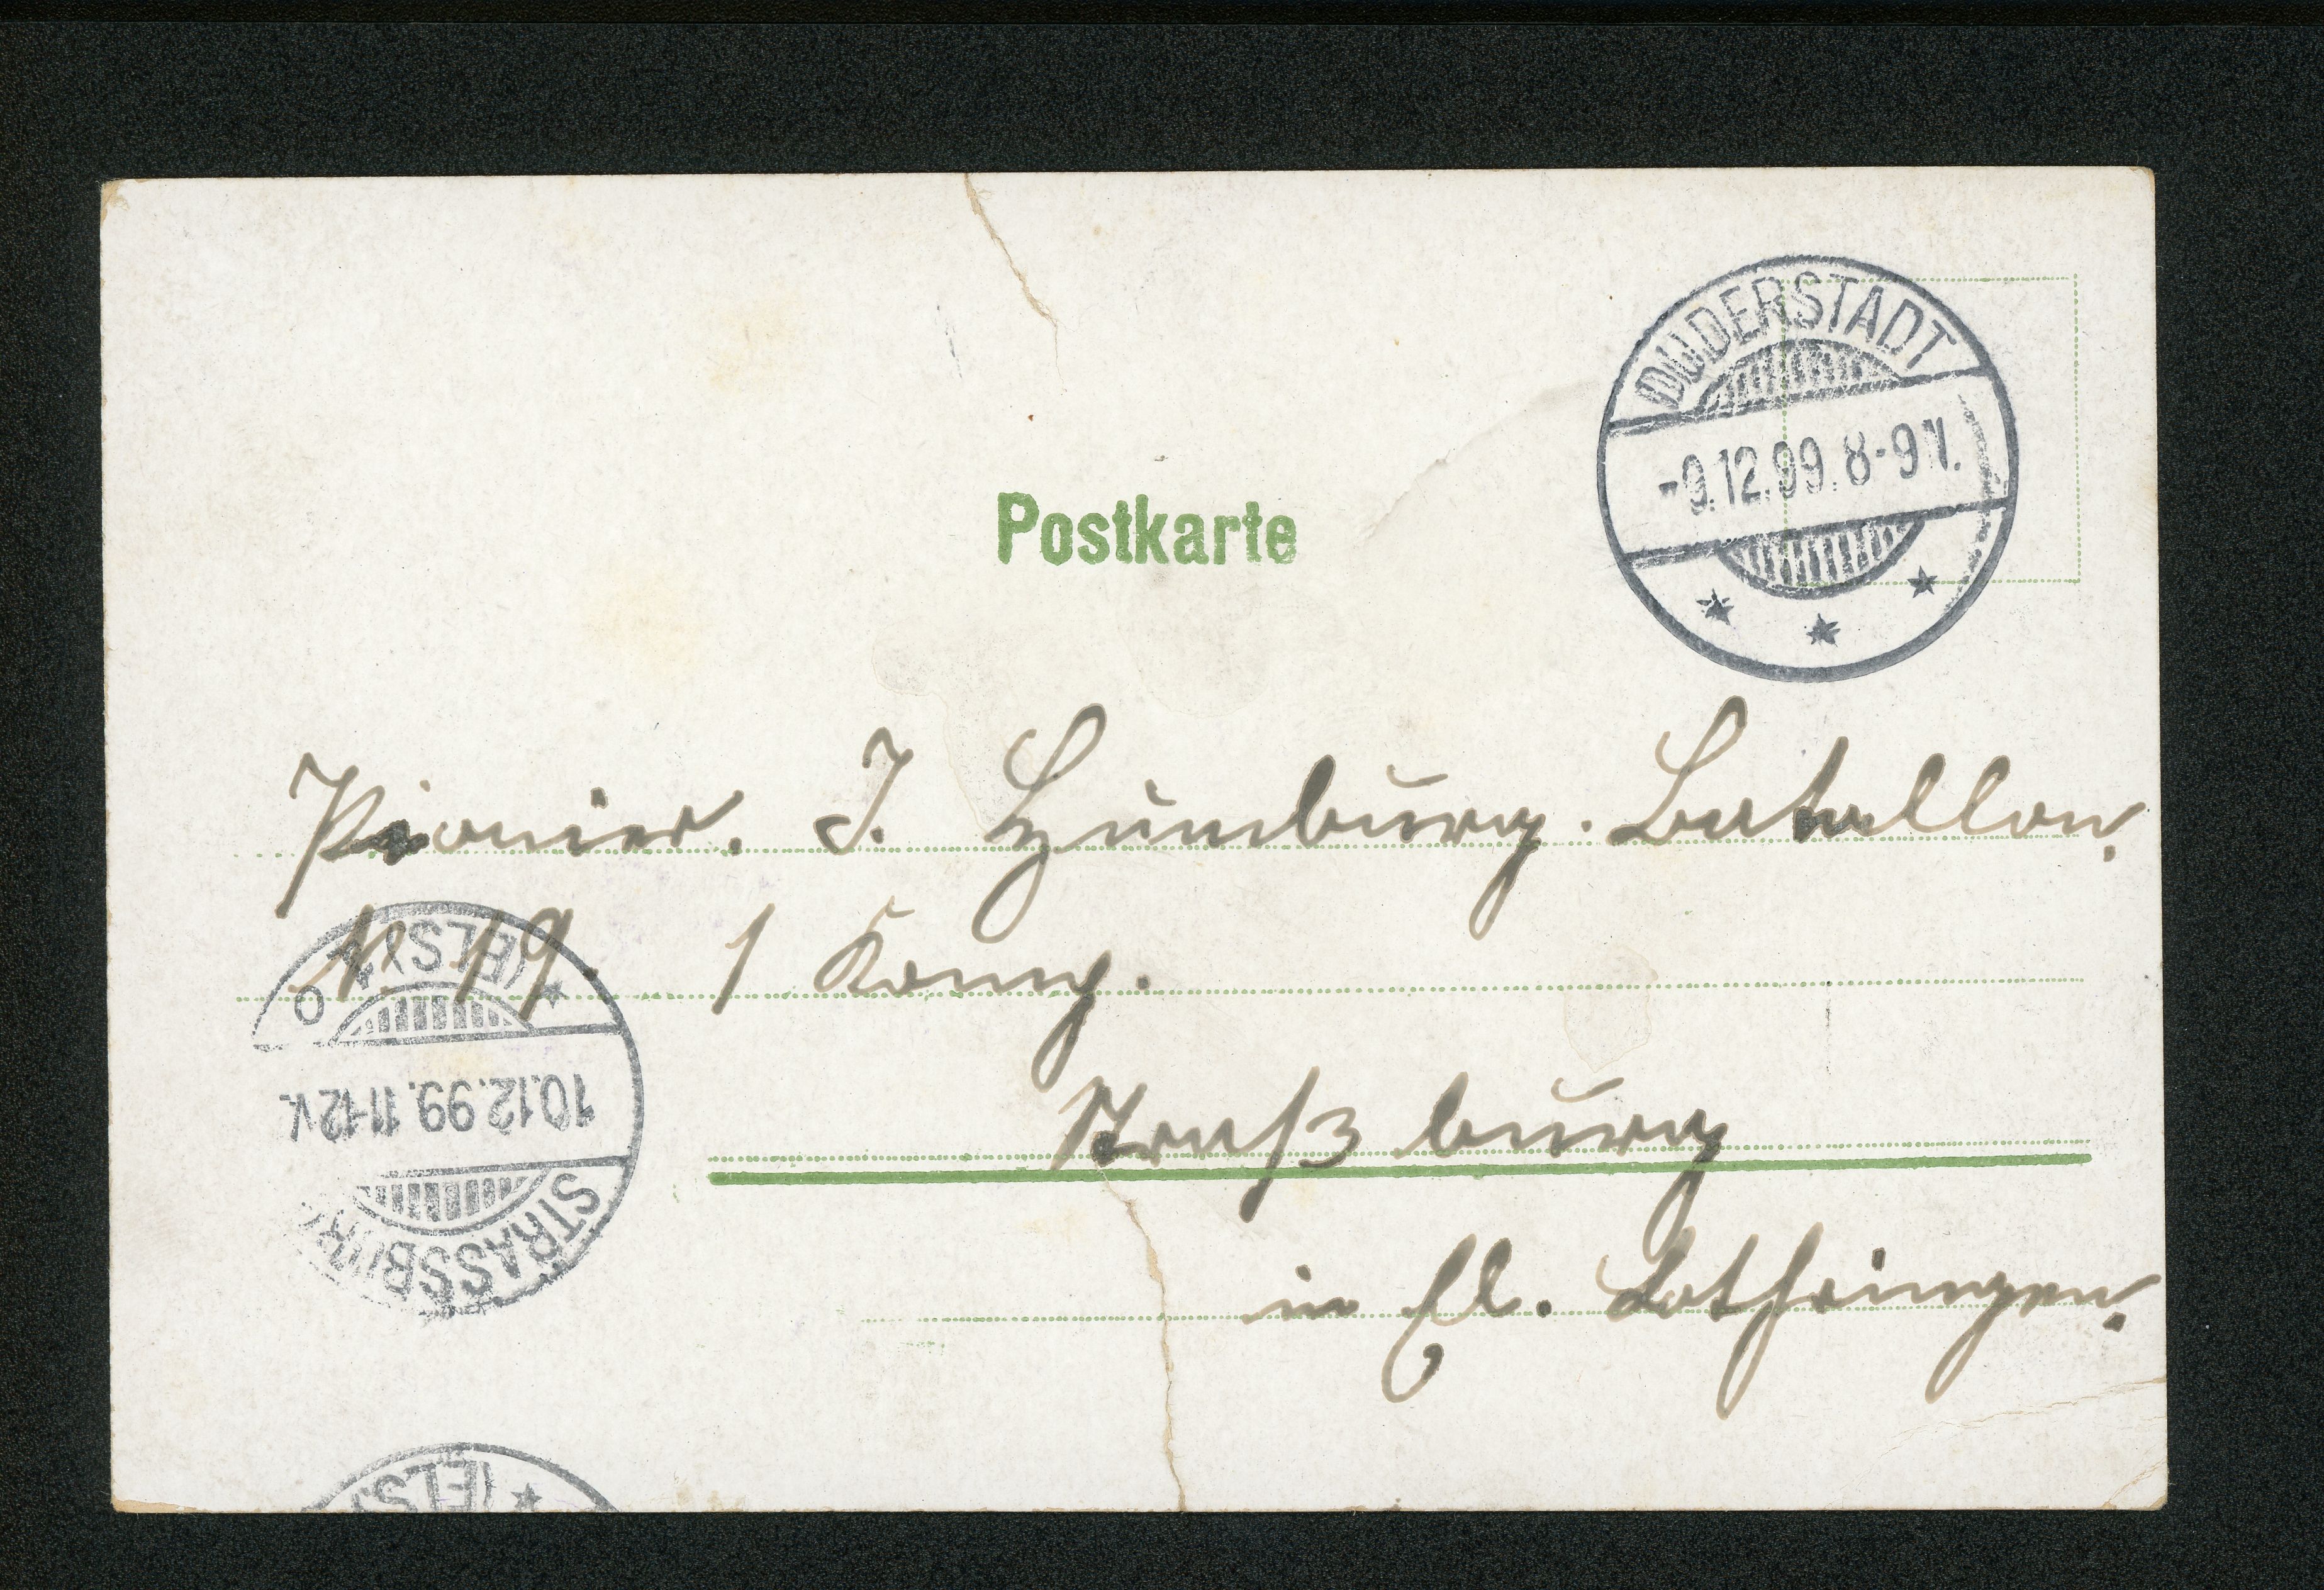 DUDERSTADT
-9.12.99. 8-9 V.
Postkarte
Pionier. J. Humburg. Batallon,
N. 19. 1 Komp.
Straßburg
in El. Lothringen,
STRASSBU
10.12.99. 11-12 V.
(ELS)
(ELS.